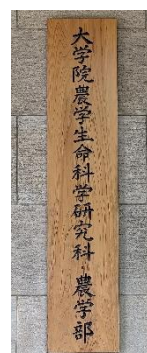 大学院農学生命科学研究科・農学部